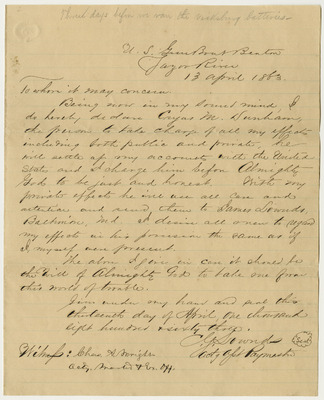 Three days before we ran the Vicksburg batteries
U. S. Gun Boat Benton
Yazoo River
13 April 1863.
To whom it may concern
Being now in my sound mind, I
do hereby declare Cyrus M. Dunham,
the person to take charge of all my effects
including both public and private, he
will settle up my accounts with the United
States and I charge him before Almighty
God to be just and honest. With my
private effects he will use all care and
attention and send them to James Lownds
Md. I desire all
my effects in his possession the same as if
I myself was present.
The above I give in case it should be
the will of Almighty God to take me from
this world of trouble.
Given under my hand and seal this
thirteenth day of April, one thousand
eight hundred & sixty three.
Lownds
Actg Asst Paymaster
Seal
Witness: Chas. A. Wright
Actg. Master & Ex. Off.